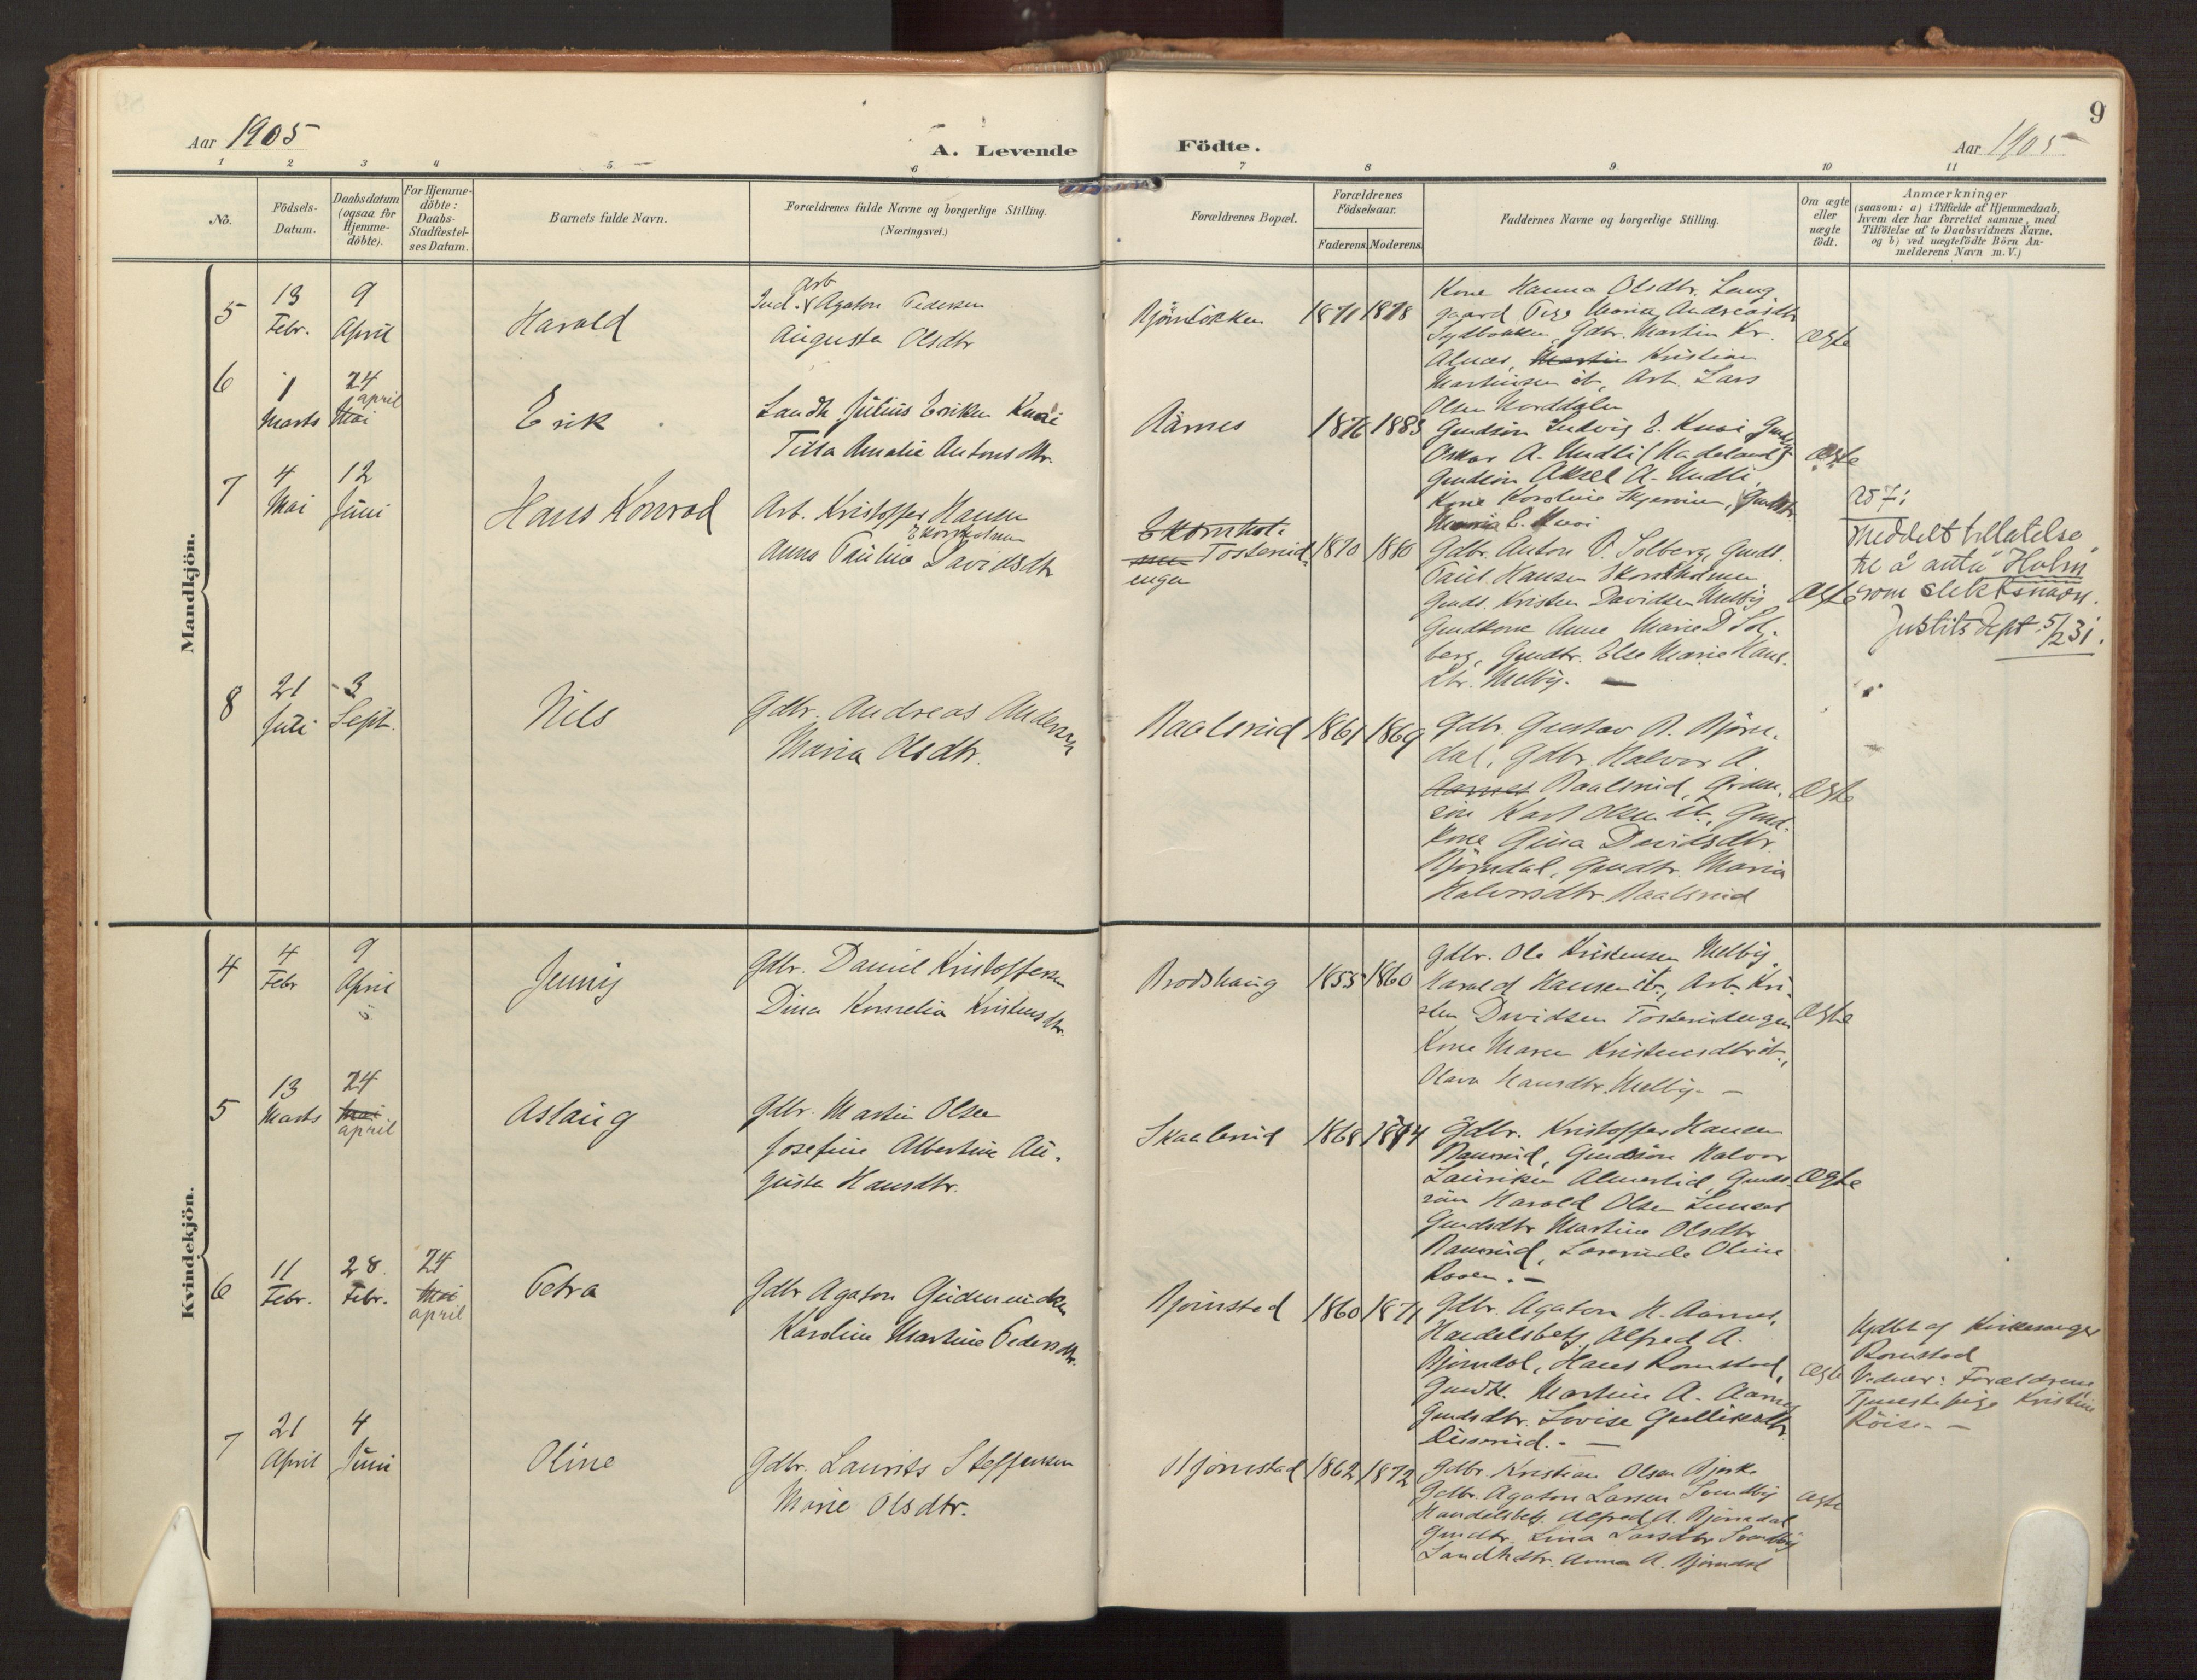 9
Aar 1905
A. Levende
Födte.
Aar 1905
1 2 3 4 5 6 7 8 9 10 11
No.
Födsels-
Datum.
Daabsdatum
(ogsaa for
Hjemme-
döbte).
For Hjemme-
döbte:
Daabs-
Stadfæstel-
ses Datum.
Barnets fulde Navn.
Forældrenes fulde Navne og borgerlige Stilling.
(Næringsvei.)
Forældrenes Bopæl.
Forældrenes
Födselsaar.
Faderens. Moderens.
Faddernes Navne og borgerlige Stilling.
Om ægte
eller
uægte
födt.
Anmærkninger
(saasom: a) i Tilfælde af Hjemmedaab,
hvem der har forrettet samme, med
Tilföielse af to Daabsvidners Navne,
og b) ved uægtefödte Börn An-
melderens Navn m. V.)
Mandkjön.
5
13
Febr.
9
April
Harald
Arb
Ind. Agaton Pedersen
Augusta Olsdtr
1871 1878
Kone Hanna Olsdtr. Lang
gaard Pige Maria Andreasdtr
Gdbr. Martin Kr.
Alnæs, Martin Kristian
Martinsen ib, Arb. Lars
Olsen Norddalen
Ægte
6
1
Marts
24
april
Mai
Erik
Landh Julius Eriksen Knai
Tilla Amalie Antonsdtr.
Aarnes
1876 1883
Gmdsön Ludvig E. Knai
Oskar A. Undli (Hadeland)
Gmdsön Aksel A. Undli,
Kone Karoline
Maria E. Knai
Ægte
7
4
Mai
12
Juni
Hans Konrad
Arb. Kristoffer Hansen
Ekornholmen
Anna Pauline Davidsdtr
Ekornhol-
men Tosterud-
engen
1870 1880
Gdbr. Anton P. Solberg, Gmds.
Paul Hansen Ekornholmen
Gmds. Kristen Davidsen Melby
Gmdkone Anne Marie D Sol-
berg, Gmdtr. Else Marie Hans-
dtr. Melby. —
Ægte
ad 7:
Meddelt tillatelse
til å anta "Holm"
som slektsnavn.
Justits dept. 5/2 31.
8
21
Juli
3
Sept.
Nils
Gdbr. Andreas Andersen
Maria Olsdtr.
Raalsrud
1861 1869
Gdbr. Gustav A. Björn-
dal, Gdbr. Halvor A.
Aarnes Raalsrud,
sön Karl Olsen ib, Gmd.
kone Gina Davidsdtr
Björndal, Gmdtr. Maria
Halvorsdtr. Raalsrud
Ægte
Kvindekjön.
4
4
Febr
9
April
Jenny
Gdbr. Daniel Kristoffersen
Dina Kornelia Kristensdtr.
Brodshaug
1855 1860
Gdbr. Ole Kristensen Melby,
Harald Hansen ib., Arb. Kri-
sten Davidsen Tosterudengen
Kone Maren Kristensdtr ib.,
Olava Hansdtr. Melby. —
Ægte
5
13
Marts
24
Mai
april
Aslaug
Gdbr. Martin Olsen
Josefine Albertine Au-
gusta Hansdtr.
Skaalsrud
1868 1874
Gdbr. Kristoffer Hansen
Ramsrud, Gmdsön Halvor
Lauriksen Gmds-
sön Harald Olsen
Gmdsdtr Martine Olsdtr
Ramsrud, Lærerinde Oline
Roven. —
Ægte
6
11
Febr.
28
Febr.
24
Mai
april
Petra
Gdbr Agaton Gudmundsen
Karoline Martine Pedersdtr.
Björnstad
1860 1871
Gdbr. Agaton H. Aarnes,
Handelsbetj. Alfred A.
Björndal, Hans Ramstad,
Gmdk. Martine A. Aarnes
Gmdsdtr. Lovise Gulliksdtr
Disserud. —
Ægte
Hjdbt af Kirkesanger
Ramstad
Vidner: Forældrene
Tjenestepige Kristine
Röise. —
7
21
April
4
Juni
Oline
Gdbr. Laurits Steffensen
Marie Olsdtr.
Björnstad
1862 1872
Gdbr. Kristian Olsen Bjerke
Gdbr. Agaton Larsen Svendby
Handelsbetj. Alfred A. Björndal
Gmdtr. Lina Larsdtr Svendby
Landhdtr. Anna A. Björndal
Ægte